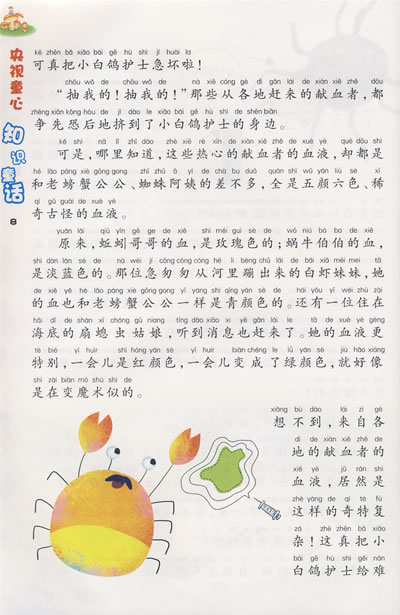 央视童心
知识童话
8
kě zhēn bǎ xiǎo bái gē hù shi jí huài la
可真把小白鸽护士急坏啦！
chōu wǒ de chōu wǒ de nà xiē cóng gè dì gǎn lái de xiàn xiě zhě dōu
“抽我的！抽我的！”那些从各地赶来的献血者，都
zhēng xiān kǒng hòu de jǐ dào le xiǎo bái gē hù shi de shēn biān
争先恐后地挤到了小白鸽护士的身边。
kě shì nǎ lǐ zhī dào zhè xiē rè xīn de xiàn xiě zhě de xuè yè què dōu shì
可是，哪里知道，这些热心的献血者的血液，却都是
hé lǎo páng xiè gōng gong zhī zhū ā yí de chà bu duō quán shì wǔ yán liù sè xī
和老螃蟹公公、蜘蛛阿姨的差不多，全是五颜六色、稀
qí gǔ guài de xuè yè
奇古怪的血液。
yuán lái qiū yǐn gē ge de xiě shì méi gui sè de wō niú bó bo de xiě
原来，蚯蚓哥哥的血，是玫瑰色的；蜗牛伯伯的血，
shì dàn lán sè de nà wèi jí cōng cōng cóng hé lǐ bèng chū lái de bái xiā mèi mei tā
是淡蓝色的。那位急匆匆从河里蹦出来的白虾妹妹，她
de xiě yě hé lǎo páng xiè gōng gong yī yàng shì qīng yán sè de hái yǒu yī wèi zhù zài
的血也和老螃蟹公公一样是青颜色的。还有一位住在
hǎi dǐ de shàn sī chóng gū niang tīng dào xiāo xi yě gǎn lái le tā de xuè yè gèng
海底的扇螅虫姑娘，听到消息也赶来了。她的血液更
tè bié yī huìr shì hóng yán sè yī huìr biàn chéng le lǜ yán sè jiù hǎo xiàng
特别，一会儿是红颜色，一会儿变成了绿颜色，就好像
shì zài biàn mó shù shì de
是在变魔术似的。
xiǎng bù dào lái zì gè
想不到，来自各
dì de xiàn xiě zhě de
地的献血者的
xuè yè jū rán shì
血液，居然是
zhè yàng de qí tè fù
这样的奇特复
zá zhè zhēn bǎ xiǎo
杂！这真把小
bái gē hù shi gěi nán
白鸽护士给难